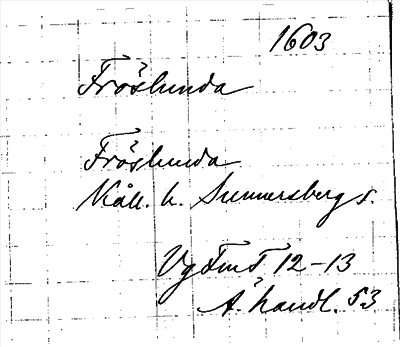 1603
Fröslunda
Fröslunda
Kåll. h. Sunnersbergs.
VgFmT 12-13
Å. handl. 53